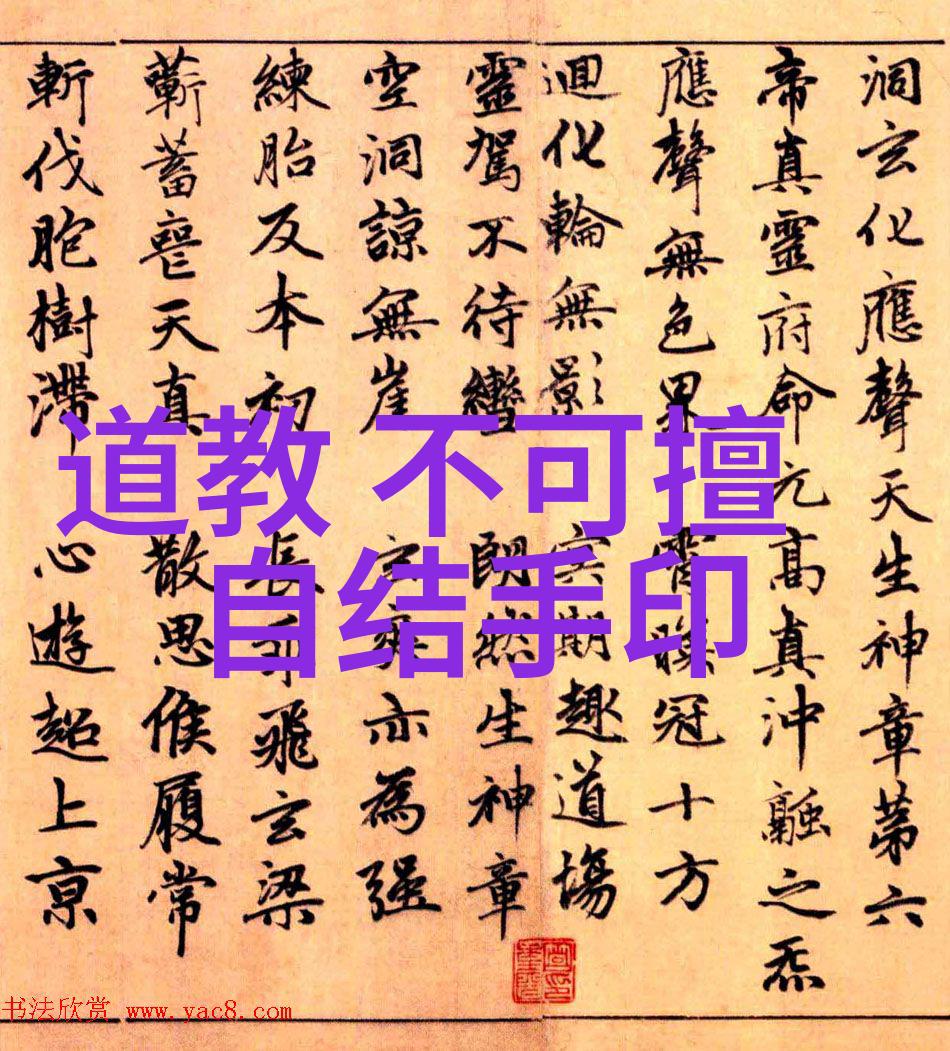 洞玄化應聲天生神章第六
帝真靈府命元高真沖融之炁
應聲無色界 霄暎冠十方
迴化輪無影 冥期趣道場
靈駕不待轡 朗然生神章
空洞諒無崖 玄爽亦為強
練胎反本初 長乘飛玄梁
蘄蓄喪天真 散思候履常
斬伐胞樹滯 心遊超上京
道教 不可擅
自结手印
书法欣赏 www.yac8.com